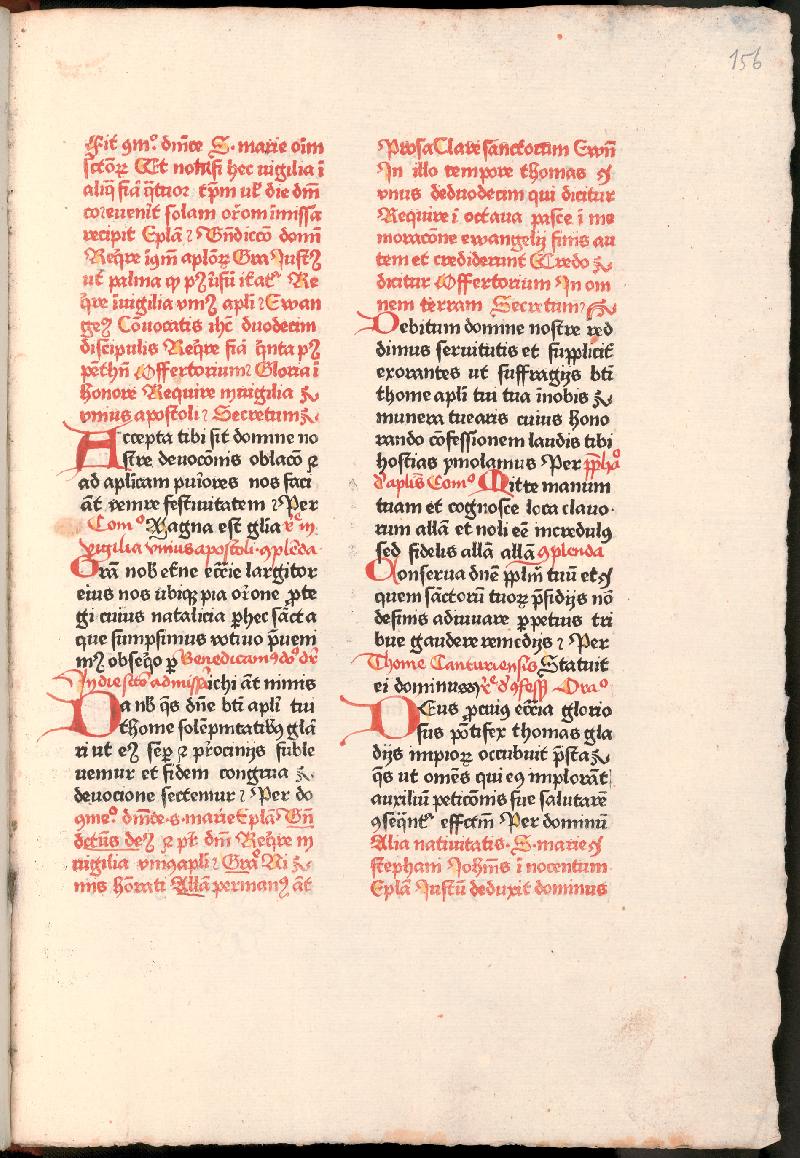 156
Fit 9mº. dn̄ice S. marie om̄
sctōꝝ Et notā si hec uigilia ī
aliq̄ fīa q̄tuor tp̄m ul' die dn̄i
coreuenit solam or̄om īmissa
recipit Ep̄lā ⁊ Bn̄diccō domī
Req̄re ī 9m̄ apl'oꝝ Gra Justꝫ
ut palma ꝙ pꝫ v̄sū itat' Re
q̄re ī uigilia vniꝫ apl'i ⁊ Ewan
geꝫ Cōuocatis ihc̄ duodecim
discipulis Req̄re fīa q̄nta pꝫ
pēth̄n Offertorium Gloria ī
honore Require in uigilia
vnius apostoli ⁊ Secretum
Accepta tibi sit domine no
stre deuocōnis oblacō ⁊
ad aplicam puiores nos faci
āt uenire festiuitatem ⁊ Per
Comº Magna est glīa re' in
vigilia vnius apostoli. 9plenda
Orā nob̄ et'ne ecc̄ie largitor
eius nos ubiqꝫ pia or̄one p̱te
gi cuius natalicia p̱ hec sācta
que sumpsimus uotiuo p̄ueni
mꝰ obseq̄o p̱ Benedicamꝰ dº dr̄
In die sctō ad miss̄ Michi āt nimis
Da nb̄ q̄s dn̄e bt̄i apl'i tui
thome solēpnitatibꝰ glā
ri ut eꝫ sep̱ ⁊ pr̄ocinijs suble
uemur et fidem congrua
deuocione sectemur ⁊ Per do
9meº. dn̄ice. s. marie Ep̄lā Bn̄
dctūs deꝫ ⁊ pr̄ dn̄i Req̄re in
uigilia vniꝰ apl'i ⁊ Graº Ni
mis hōrati Allā permanꝫ āt
Prosa Clare sanctorum Ewn̄
In illo tempore thomas
vnus de duodecim qui dicitur
Require ī octaua pasce ī me
moracōne ewangelij finis au
tem et crediderunt Credo
dicitur Offertorium In om
nem terram Secretum
Debitum domine nostre red
dimus seruitutis et supplicit'
exorantes ut suffragijs bt̄i
thome apl'i tui tua ī nobis
munera tuearis cuius hono
rando cōfessionem laudis tibi
hostias ymolamus Per pp̄hā
d' apl'is Comº Mitte manum
tuam et cognosce loca clauo
rum allā et noli eē incredulꝰ
sed fidelis allā allā 9plenda
Conserua dn̄e pp̄lm̄ tuū et
quem sāctorū tuoꝝ p̄sidijs nō
desinis adiuuare p̱petuis tri
bue gaudere remedijs ⁊ Per
Thome Canturiensis Statuit
ei dominus re' d' 9fess' Oraº
Deus p̱ cuiꝰ ecc̄ia glorio
sus pōtifex thomas gla
dijs impioꝝ occubuit p̄sta
q̄s ut omēs qui eꝰ implorāt
auxiliū peticōnis sue salutarē
9seq̄nt' effctm̄ Per dominū
Alia natiuitatis. S. marie
stephani Joh̄nis ī nocentum
Ep̄lā Justū deduxit dominus